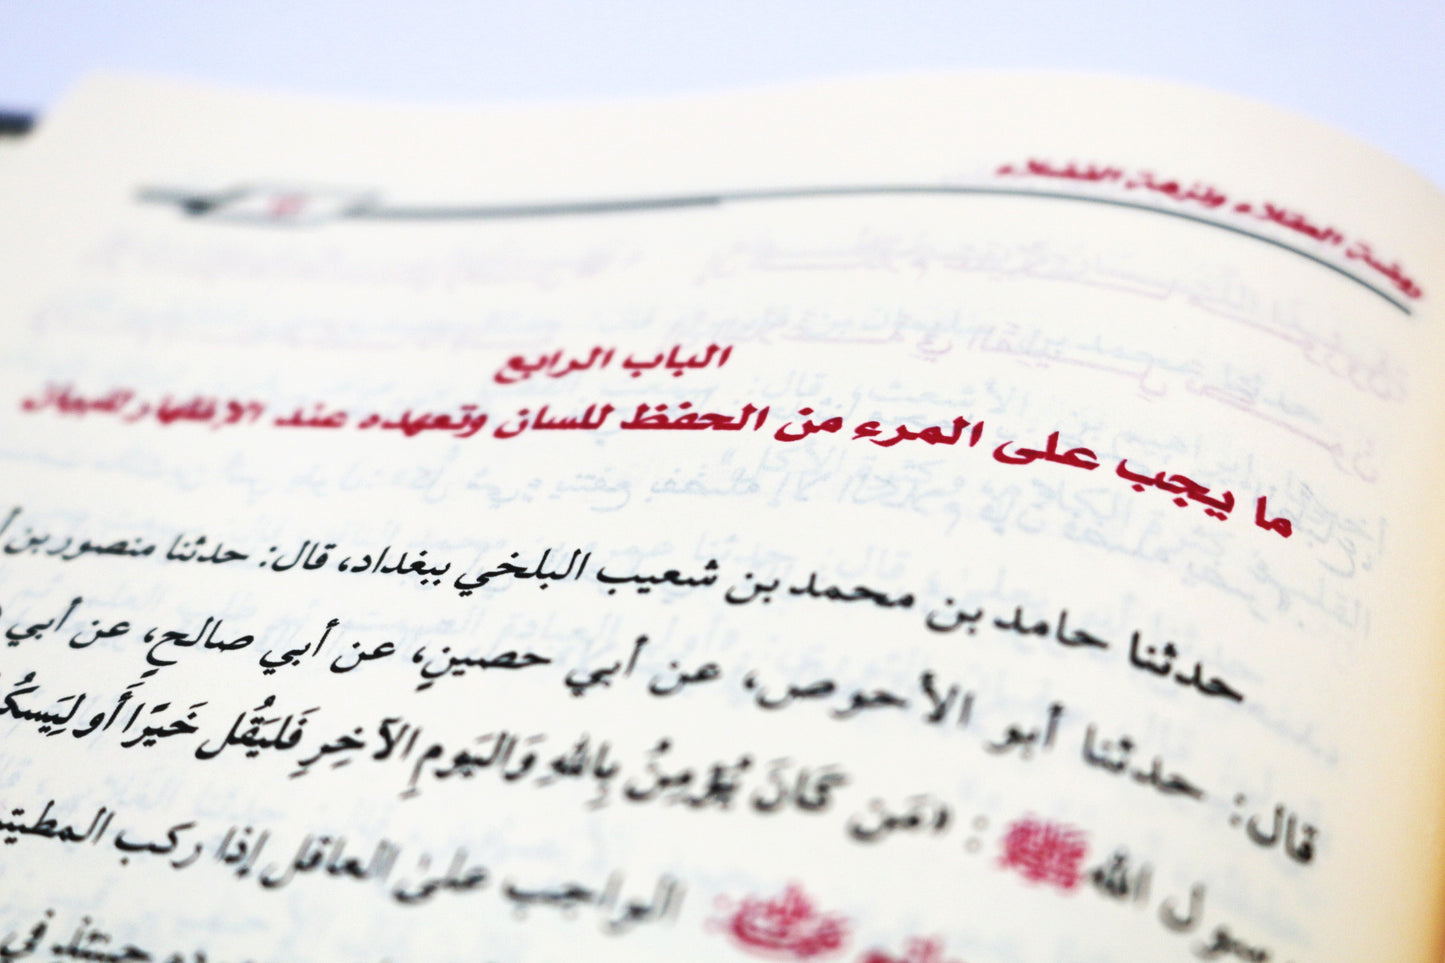 روضة العقلاء ونزهة الفضلاء
الباب الرابع
ما يجب على المرء من الحفظ للسان وتعهده عند الإظهار للبيان
حدثنا حامد بن محمد بن شعيب البلخي ببغداد، قال: حدثنا منصور بن
قال: حدثنا أبو الأحوص، عن أبي حصينٍ، عن أبي صالحٍ، عن أبي
رسول الله ﷺ: «مَن كَانَ يُؤمِنُ بِاللهِ وَاليَومِ الآخِرِ فَليَقُل خَيرًا أَو لِيَسكُ
الواجب علىٰ العاقل إذا ركب
في